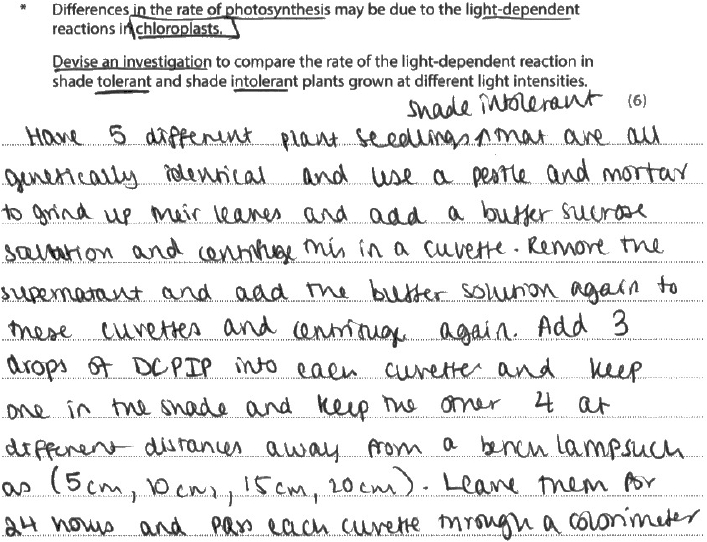 * Differences in the rate of photosynthesis may be due to the light-dependent
reactions in chloroplasts.
Devise an investigation to compare the rate of the light-dependent reaction in
shade tolerant and shade intolerant plants grown at different light intensities.
(6)
shade intolerant
Have 5 different plant seedlings ^ that are all
genetically identical and use a pestle and mortar
to grind up their leaves and add a buffer sucrose
solution and centrifuge this in a cuvette. Remove the
supernatant and add the buffer solution again to
these cuvettes and centrifuge again. Add 3
drops of DCPIP into each cuvette and keep
one in the shade and keep the other 4 at
different distances away from a bench lamp such
as (5cm, 10cm, 15cm, 20cm). Leave them for
24 hours and pass each cuvette through a colorimeter